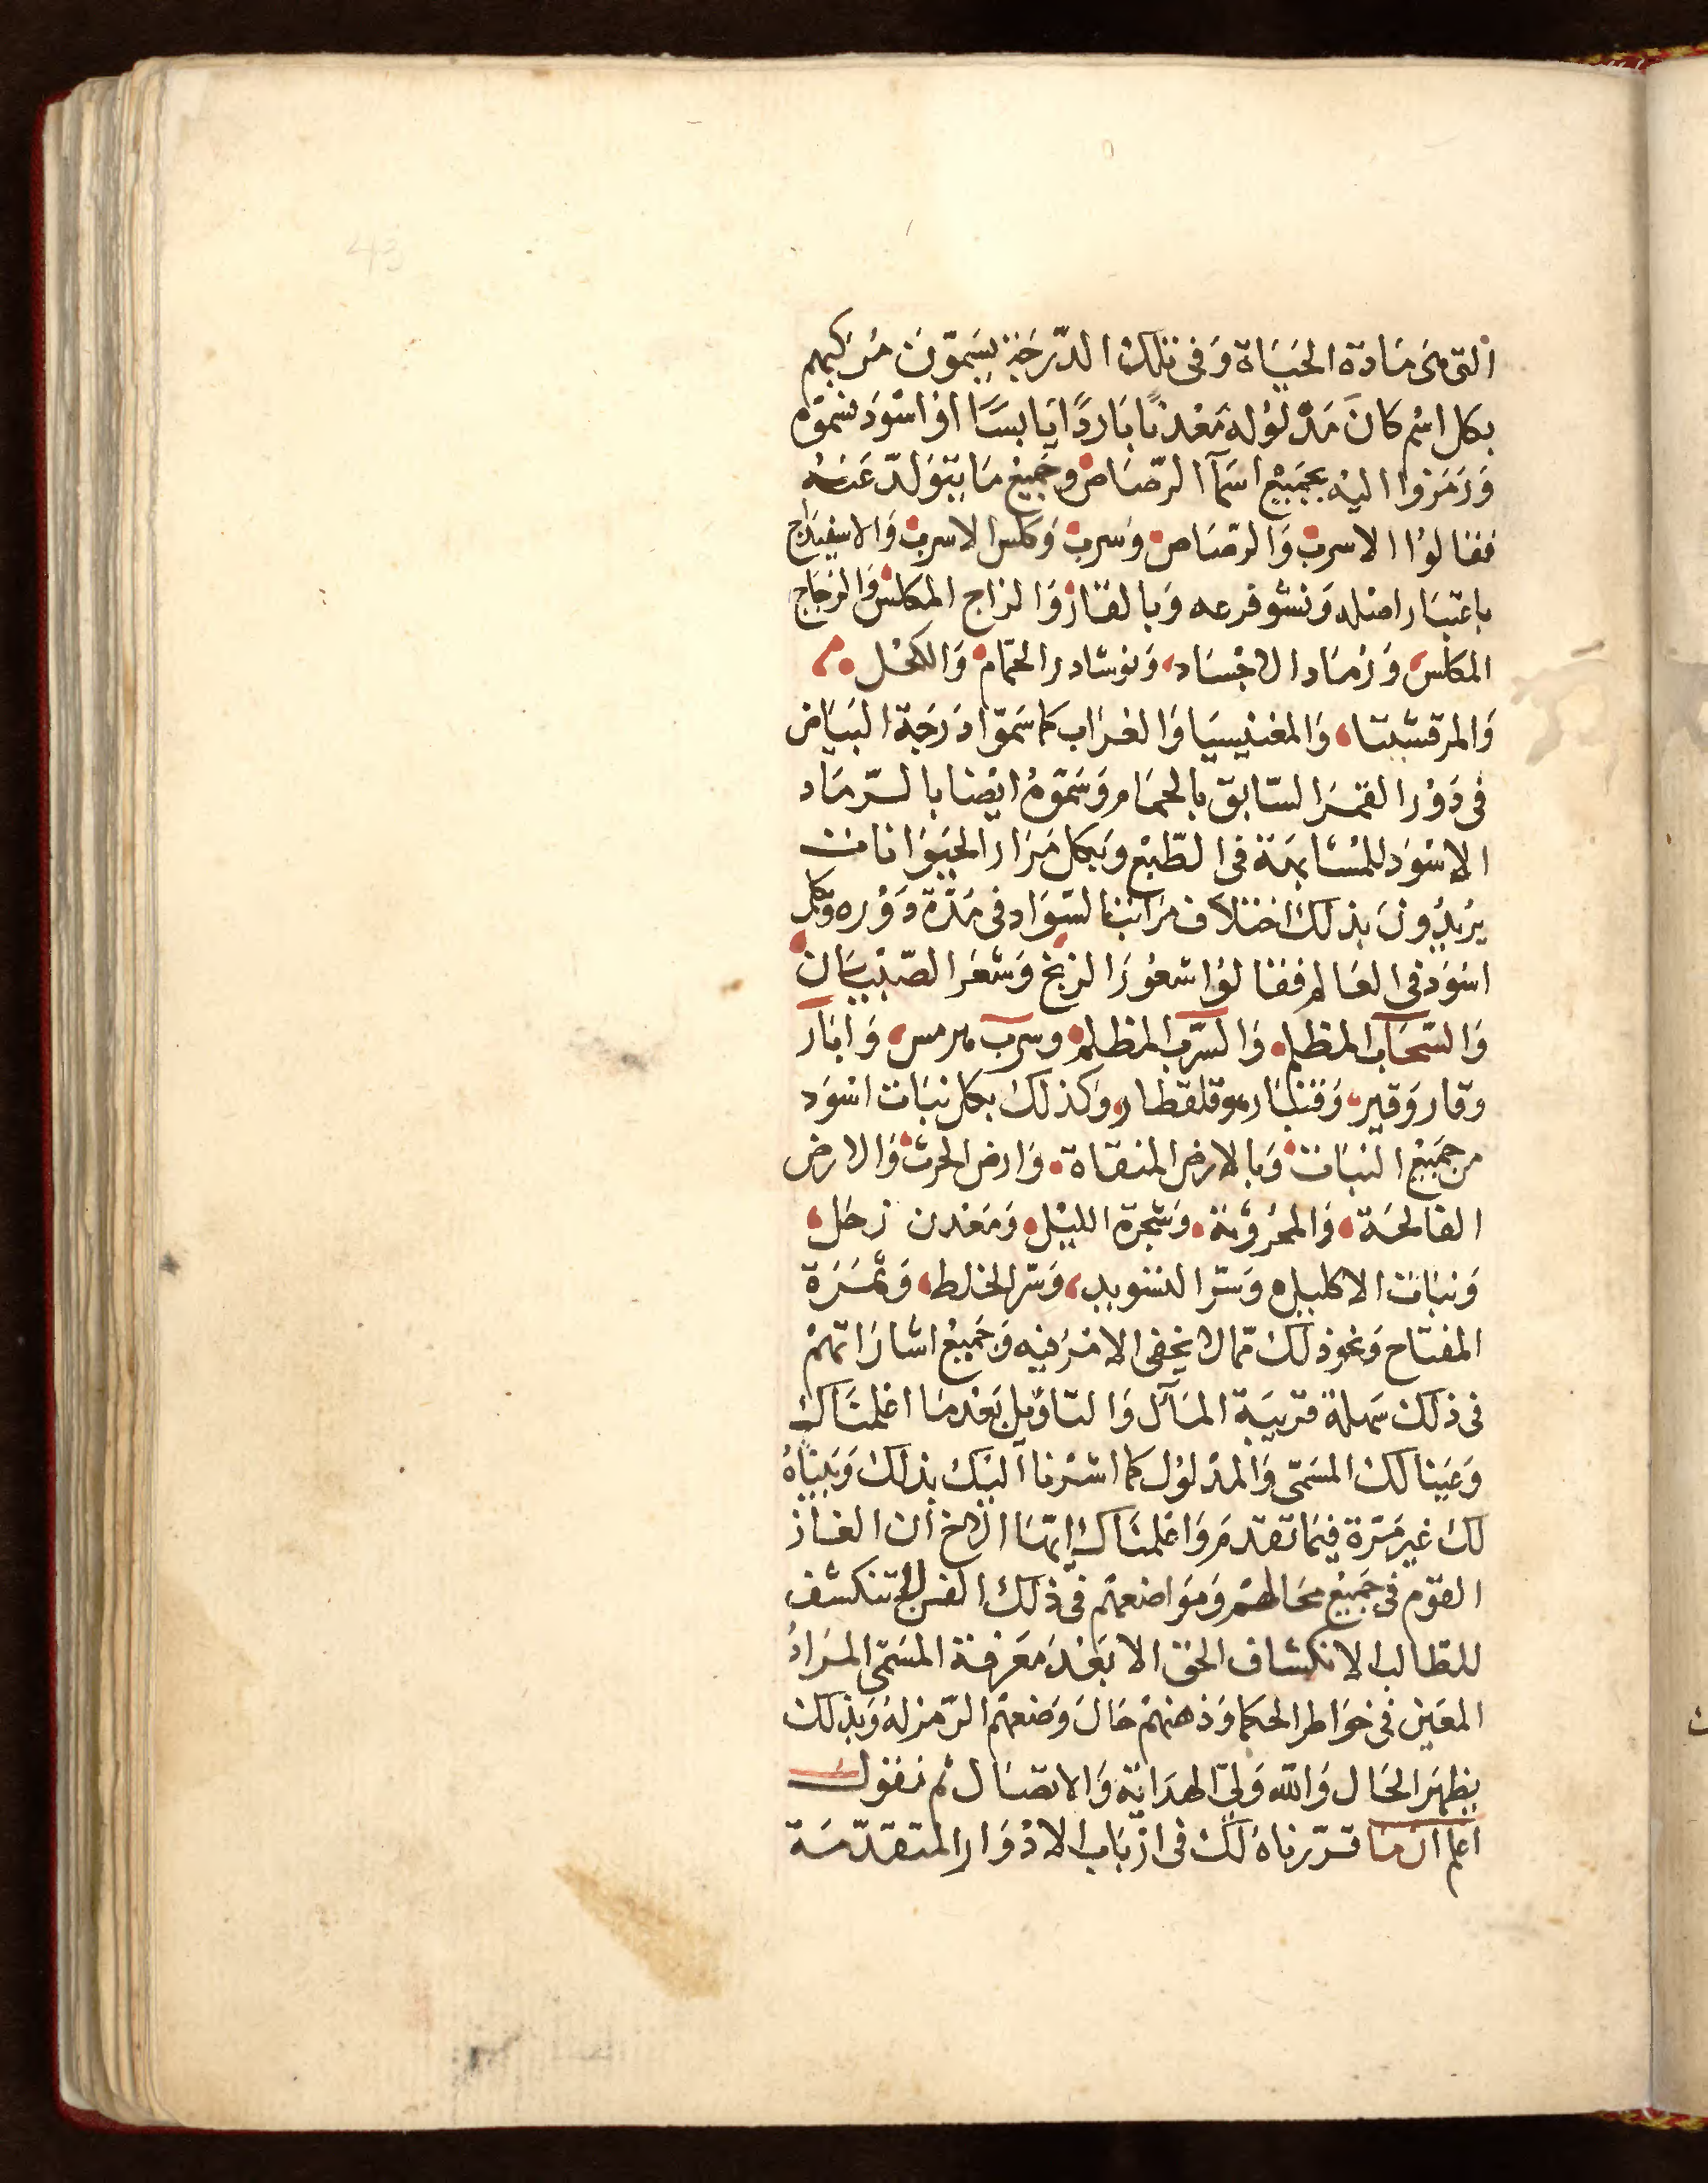 43
التى هى مَادة الحَيَاة وَفى تلك الدّرَجَة يسَمّونَ مُركبهم
بكل اسْم كانَ مَدْلوُله مَعْدنيًا بَاردًا يَابسًا اوْ اسْوَد فسَمّوه
وَرَمَزوُا اليْه بجَميْع اسَمآ الرّصَاص وجَميْع مَا يتَوَلدّ عَنهُ
فقالوُا الاسرب وَالرصَاص وَسرب وَكلس الاسرب وَالاسفيداج
باعتبَار اصْله وَنشو فرعه وَبالقار وَالزاج المكلس وَالزجَاج
المكلس وَرَمَاد الاجْسَاد وَنوشادر الحمّام وَالكحْل
وَالمرقشيتا وَالمغنيسيَا وَالغرَاب كما سَمّوا دَرَجَة البيَاض
فى دَوْر القمَر السّابق بالحمَام وَسَمّوْهُ ايْضا بالرّمَاد
الاسْوَد للمُشابهَة فى الطّبْع وَبكل مَرَار الحيَوَانات
يرُيدُونَ بذلك اختلاف مَرَاتب السّوَاد فى مَدّة دَوْره وَبكل
اسْوَد فى العَالم فقالوُا شعوُر الزنج وَشعَر الصّبْيَان
وَالسّحَاب المظلم وَالسّرب المظلم وسرب هرمس وَابَار
وقار وَقير وَقنطَار وقلقطار وَكذلك بكل نبَات اسْوَد
من جَميْع النبَات وَبالارض المنقاة وَارض الحرث وَالارض
القالحَة وَالمحرُوْثة وَشجرة الليْل وَمَعْدن زحَل
وَنبَات الاكليل وَسّر التسويد وَسّر الخلط وَثمَرَة
المفتاح وَنحو ذلك ممّا لا يخفى الامْرُ فيْه وَجَميْع اشارَاتهمْ
فى ذلك سَهلة قريبَة المآل وَالتاوْيل بَعْد مَا اعْلمناك
وَعَينا لك المسَمّى وَالمدْلوُل كما اشرْنا اليْك بذلك وَبَينّاهُ
لك غير مَرّة فيْمَا تقدمَ وَاعْلمنَاك ايّهَا الاخ ان الغاز
القوْم فى جَميْع وَمَوَاضعهمْ فى ذلك الفن لا تنكشف
للطالب الانكشاف الحق الا بَعْد مَعْرفة المسَمّى المرَادُ
المعَين فى خوَاطر الحكما وَذهنهمْ حَال وَضعهمْ الرّمز له وَبذلك
يظهَر الحَال وَالله وَلىّ الهدَايَة وَالاتصَال ثم نقول
اعلم ان مَا قرّرناهُ لك فى ارْبَاب الادْوَار المتقدّمَة